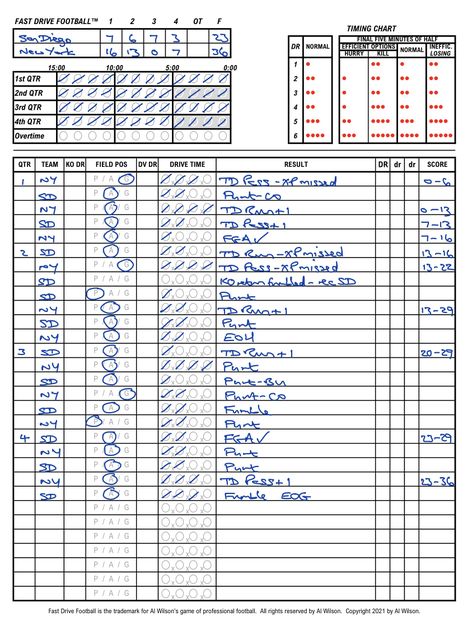 FAST DRIVE FOOTBALL™ 1 2 3 4 OT F
San Diego 7 6 7 3 23
New York 16 13 0 7 36
15:00 10:00 5:00 0:00
1st QTR
2nd QTR
3rd QTR
4th QTR
Overtime
TIMING CHART
FINAL FIVE MINUTES OF HALF
DR NORMAL EFFICIENT OPTIONS NORMAL INEFFIC.
HURRY KILL LOSING
1
2
3
4
5
6
QTR TEAM KO DR FIELD POS DV DR DRIVE TIME RESULT DR dr dr SCORE
1 NY P / A / G TD Pass - XP missed 0-6
SD P / A / G Punt - CO
NY P / A / G TD Run +1 0-13
SD P / A / G TD Pass +1 7-13
NY P / A / G FGA✓ 7-16
2 SD P / A / G TD Run - XP missed 13-16
NY P / A / G TD Pass - XP missed 13-22
SD P / A / G KO return fumbled - rec SD
SD P / A / G Punt
NY P / A / G TD Run +1 13-29
SD P / A / G Punt
NY P / A / G EOH
3 SD P / A / G TD Run +1 20-29
NY P / A / G Punt
SD P / A / G Punt - BU
NY P / A / G Punt - CO
SD P / A / G Fumble
NY P / A / G Punt
4 SD P / A / G FGA✓ 23-29
NY P / A / G Punt
SD P / A / G Punt
NY P / A / G TD Pass +1 23-36
SD P / A / G Fumble EOG
P / A / G
P / A / G
P / A / G
P / A / G
P / A / G
P / A / G
P / A / G
Fast Drive Football is the trademark for Al Wilson's game of professional football. All rights reserved by Al Wilson. Copyright 2021 by Al Wilson.